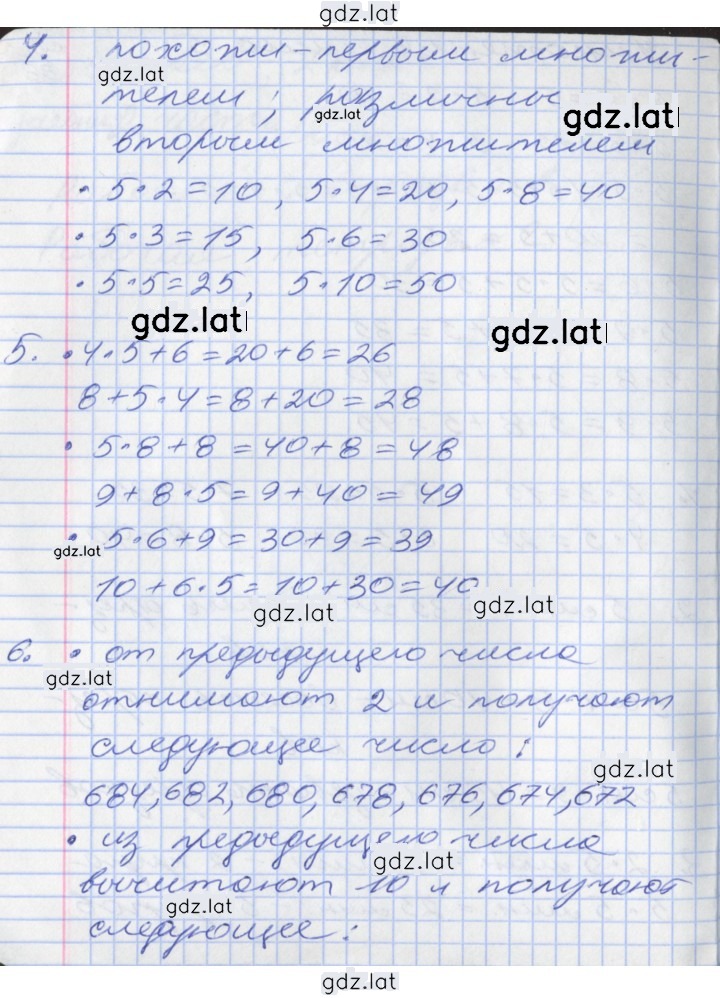 gdz.lat
4. похожи - первым множи-
gdz.lat
телем ; различны
gdz.lat
gdz.lat
вторым множителем
• 5·2=10, 5·4=20, 5·8=40
• 5·3=15, 5·6=30
• 5·5=25, 5·10=50
gdz.lat
gdz.lat
5. • 4·5+6=20+6=26
8+5·4=8+20=28
• 5·8+8=40+8=48
9+8·5=9+40=49
• 5·6+9=30+9=39
gdz.lat
10+6·5=10+30=40
gdz.lat
gdz.lat
6. • от предыдущего числа
gdz.lat
отнимают 2 и получают
следующее число:
gdz.lat
684, 682, 680, 678, 676, 674, 672
• из предыдущего числа
gdz.lat
вычитают 10 и получают
gdz.lat
следующее:
gdz.lat